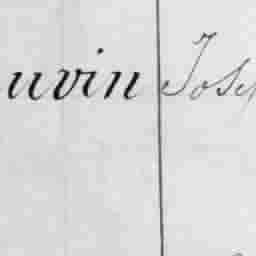 uvin Jose